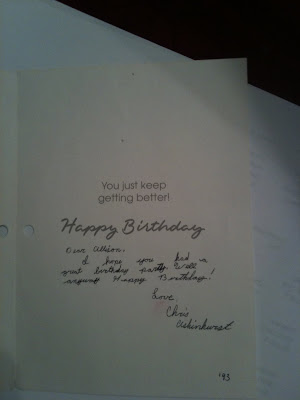 You just keep
getting better!
Happy Birthday
Dear Allison,
I hope you had a
great birthday party. Well
anyway Happy Birthday!
Love,
Chris
'93